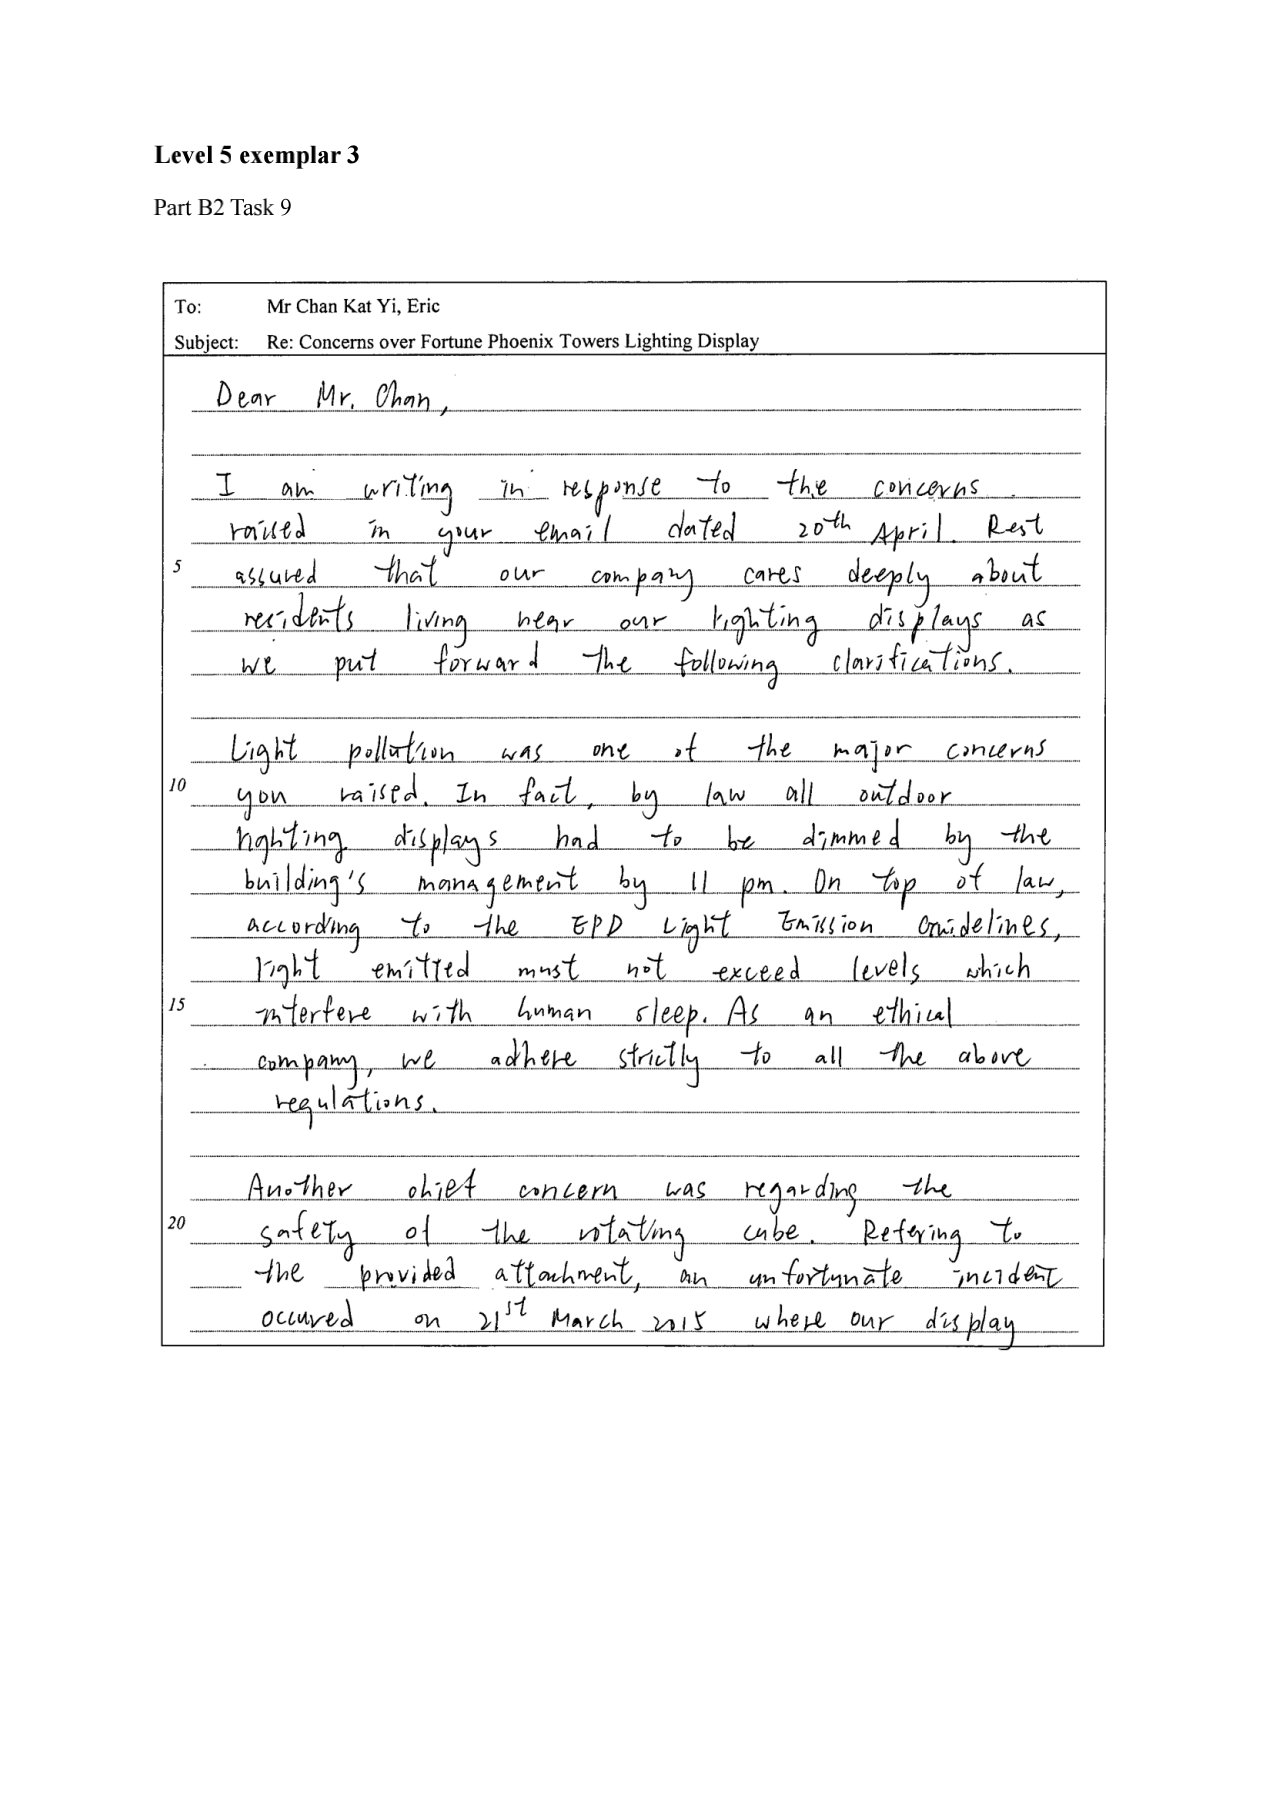 Level 5 exemplar 3
Part B2 Task 9
To: Mr Chan Kat Yi, Eric
Subject: Re: Concerns over Fortune Phoenix Towers Lighting Display
Dear Mr. Chan,
I am writing in response to the concerns
raised in your email dated 20th April. Rest
5 assured that our company cares deeply about
residents living near our lighting displays as
we put forward the following clarifications.
Light pollution was one of the major concerns
10 you raised. In fact, by law all outdoor
lighting displays had to be dimmed by the
building's management by 11 pm. On top of law,
according to the EPD Light Emission Guidelines,
light emitted must not exceed levels which
15 interfere with human sleep. As an ethical
company, we adhere strictly to all the above
regulations.
Another chief concern was regarding the
20 safety of the rotating cube. Refering to
the provided attachment, an unfortunate incident
occured on 21st March 2015 where our display